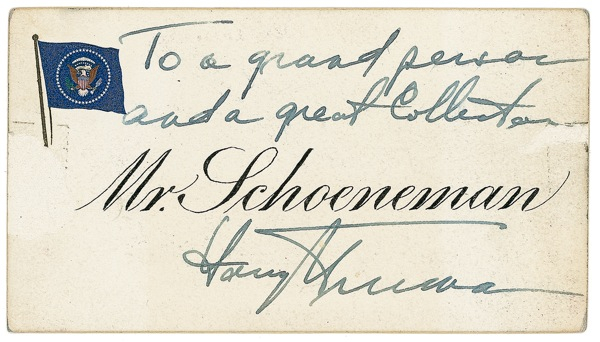 To a grand person
and a great Collector
Mr. Schoeneman
Harry Truman